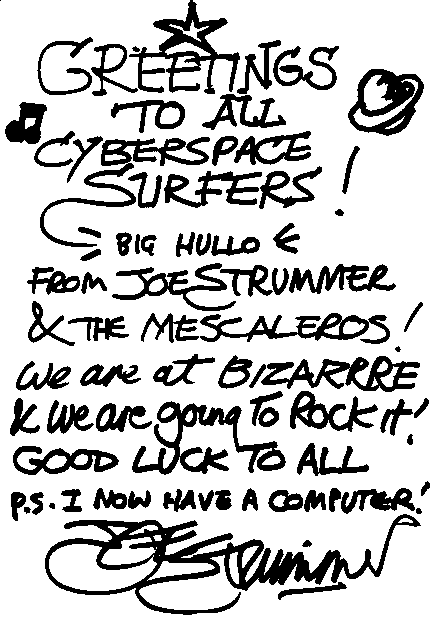 GREETINGS
TO ALL
CYBERSPACE
SURFERS!
BIG HULLO
FROM JOE STRUMMER
& THE MESCALEROS!
We are at BIZARRRE
& We are going To Rock it!
GOOD LUCK TO ALL
P.S. I NOW HAVE A COMPUTER!
Joe Strummer